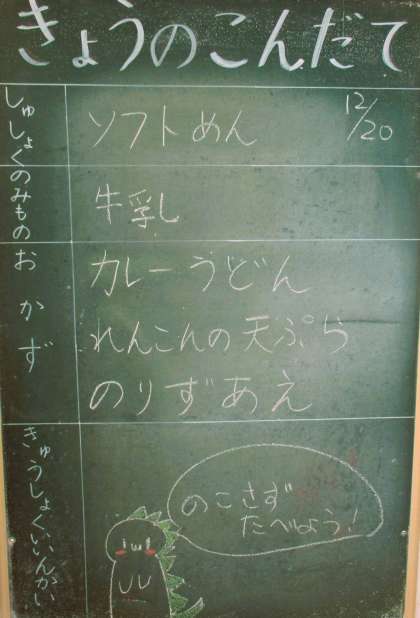 きょうのこんだて
しゅしょく
ソフトめん
12/20
のみもの
牛乳
おかず
カレーうどん
れんこんの天ぷら
のりずあえ
きゅうしょくいいんかい
のこさず
たべよう!